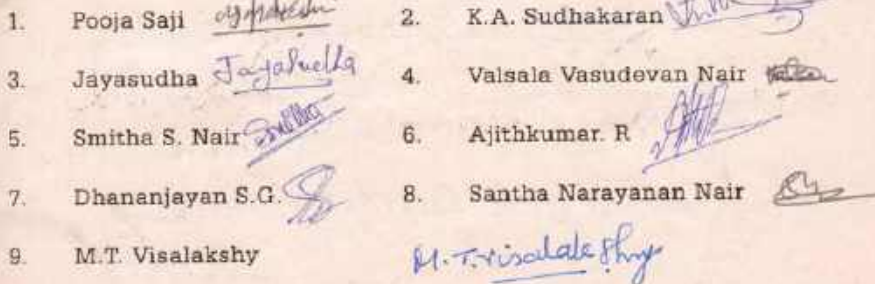 1. Pooja Saji 2. K.A. Sudhakaran
3. Jayasudha Jayasudha 4. Valsala Vasudevan Nair
5. Smitha S. Nair Smitha 6. Ajithkumar. R
7. Dhananjayan S.G. 8. Santha Narayanan Nair
9. M.T. Visalakshy M.T. Visalakshy